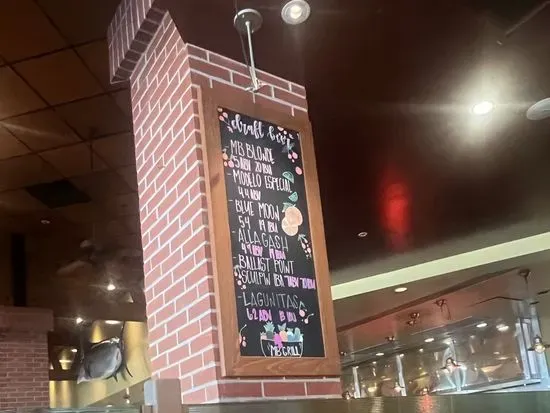 draft beer
MB BLONDE
5 ABV 20 IBU
- MODELO ESPECIAL
4.4 ABV
- BLUE MOON
5.4 19 IBU
- ALLAGASH
- BALLAST POINT
SCULPIN IBU 7ABV 70IBU
- LAGUNITAS
6.2 ABV IBU
MB GRILL